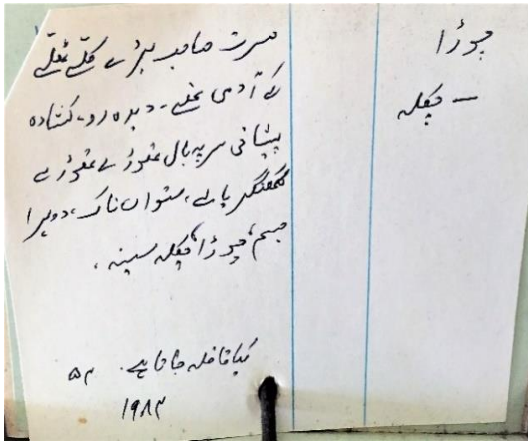 چوڑا
– چکلہ
حسرت صاحب بڑے کلّے ٹھلّے
کے آدمی تھے۔ دیدہ رو، کشادہ
پیشانی سر پہ بال تھوڑے تھوڑے
گھنگریالے، ستواں ناک، دوہرا
جسم، چوڑا چکلہ سینہ،
کیا قافلہ جاتا ہے۔ ۵۳
۱۹۸۳